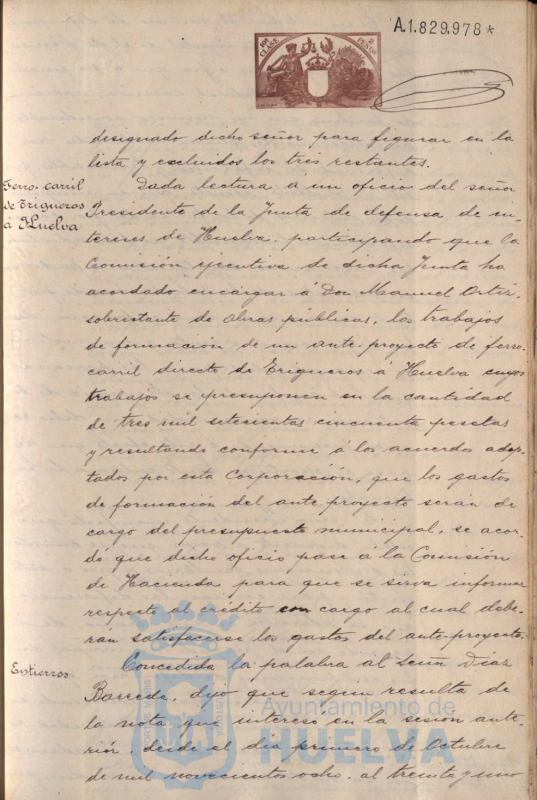 A.1.829.978*
10ª CLASE
2 PESETAS
designado dicho señor para figurar en la
lista y excluidos los tres restantes.
Ferro-carril
de Trigueros
á Huelva
Dada lectura á un oficio del señor
Presidente de la Junta de defensa de in-
tereses de Huelva, participando que la
Comisión ejecutiva de dicha Junta ha
acordado encargar á Don Manuel Ortiz,
sobrestante de Obras públicas, los trabajos
de formación de un ante-proyecto de ferro-
carril directo de Trigueros á Huelva cuyos
trabajos se presuponen en la cantidad
de tres mil setecientas cincuenta pesetas
y resultando conforme á los acuerdos adop-
tados por esta Corporación, que los gastos
de formación del ante-proyecto serán de
cargo del presupuesto municipal, se acor-
dó que dicho oficio pase á la Comisión
de Hacienda para que se sirva informar
respecto al crédito con cargo al cual debe-
rán satisfacerse los gastos del ante-proyecto.
Entierros
Concedida la palabra al señor Díaz
Barreda, dijo que según resulta de
la nota que interesó en la sesión ante-
rior, desde el día primero de Octubre
de mil novecientos ocho, al treinta y uno
Ayuntamiento de
HUELVA